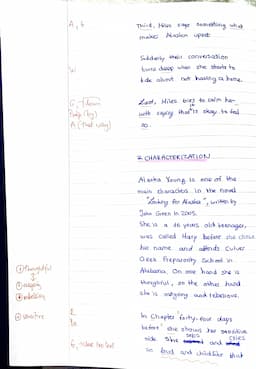 A, t
Third, Miles says something what
makes Alaska upset
Suddenly their conversation
turns deep when she starts to
talk about not having a home.
W
Last, Miles tries to calm her
with saying that is okay to feel
so.
A (that way)
2. CHARACTERIZATION
Alaska Young is one of the
main characters in the novel
"Looking for Alaska", written by
John Green in 2005.
She is a 16 years old teenager,
was called Mary before she chose
her name and attends Culver
Creek Preparatory School in
Alabama. On one hand she is
thoughtful, on the other hand
she is outgoing and rebellious.
① thoughtful
② outgoing
③ rebellious
④ sensitive
In Chapter "forty-four days
before" she shows her sensitive
side. She sobs and cries
so loud and childlike that